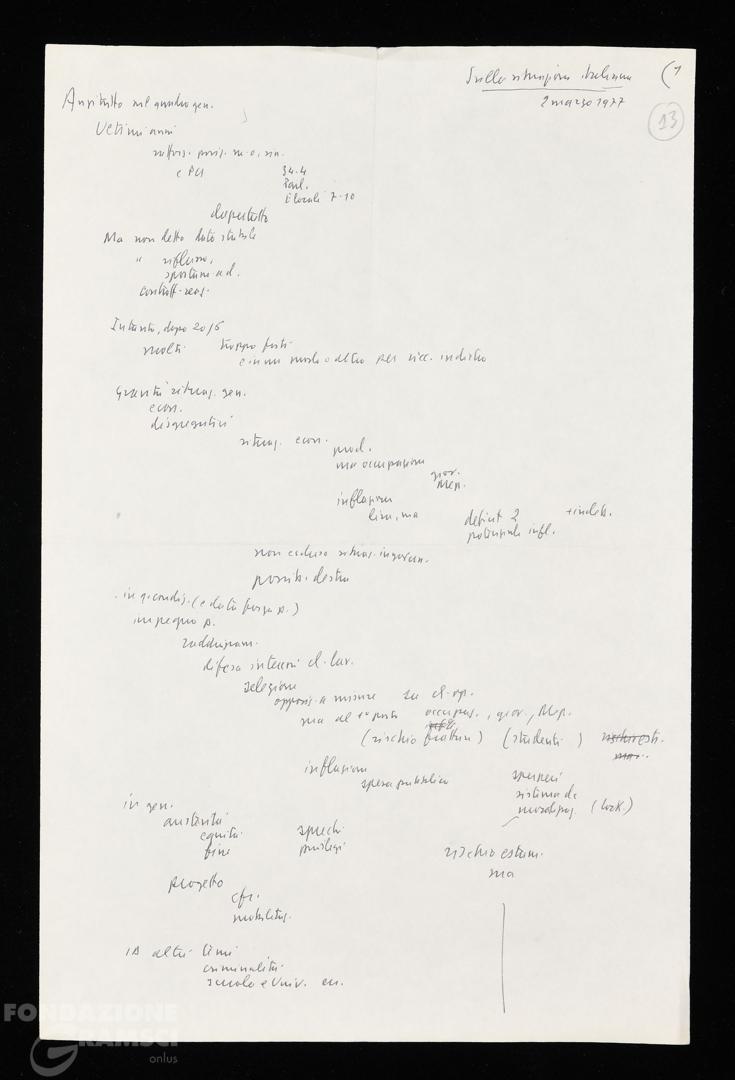 Sulla situazione italiana (1
2 marzo 1977
13
Anzitutto nel quadro gen.
Ultimi anni
raffors. posiz. m.o, sin.
e PCI 34.4
Parl.
E locali 7-10
dapertutto
Ma non detto dato stabile
" riflusso,
spostam. a d.
contratt. reaz.
Intanto, dopo 20/6
molti troppo forti
e in un modo o altro per ricc. indietro
Gravità situaz. gen.
econ.
disgregativi
situaz. econ. prod.
ma occupazione
giov.
Mep.
inflazione
lira, ma deficit 2 + indeb.
potenziale infl.
non escluso situaz. ingovern.
possib. destra
in q. condiz. (e data forza p.)
impegno p.
raddrizzam.
difesa interessi cl. lav.
selezione
opposiz. a misure su cl. op.
ma al 1° posto occupaz., giov., Mep.
(rischio fratture) (studenti)
inflazione
spesa pubblica sperperi
sistema di
in gen.
austerità
equità sprechi
fine privilegi
rischio estran.
ma
progetto
cfr.
mobilitaz.
A altri temi
criminalità
scuola e Univ. ecc.
FONDAZIONE
GRAMSCI
onlus